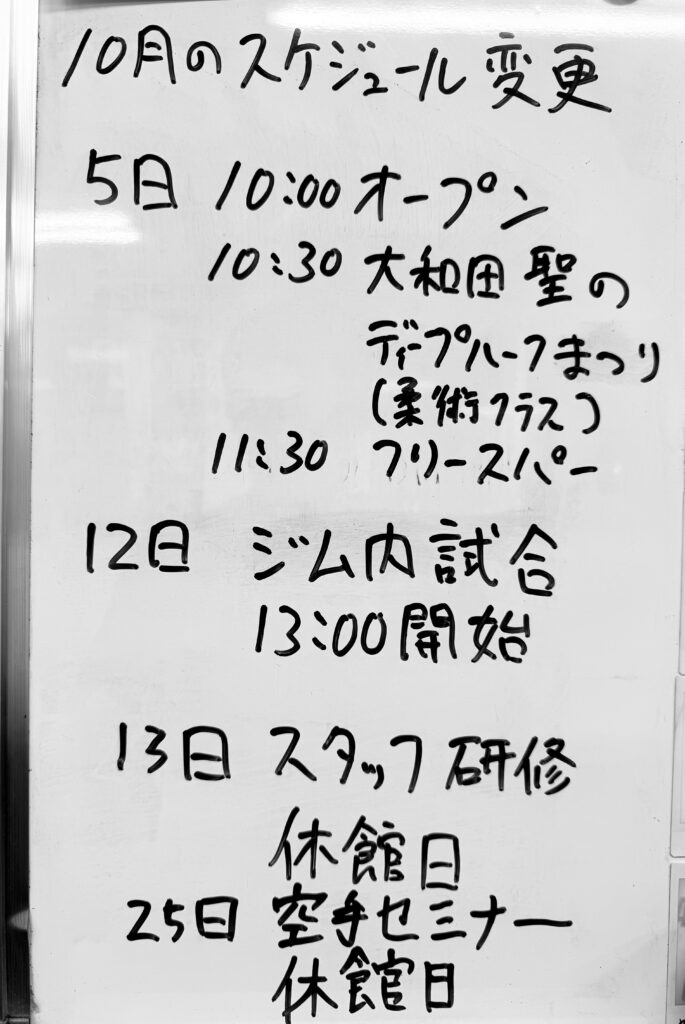 10月のスケジュール変更
5日 10:00 オープン
10:30 大和田聖の
ディープハーフまつり
(柔術クラス)
11:30 フリースパー
12日 ジム内試合
13:00開始
13日 スタッフ研修
休館日
25日 空手セミナー
休館日